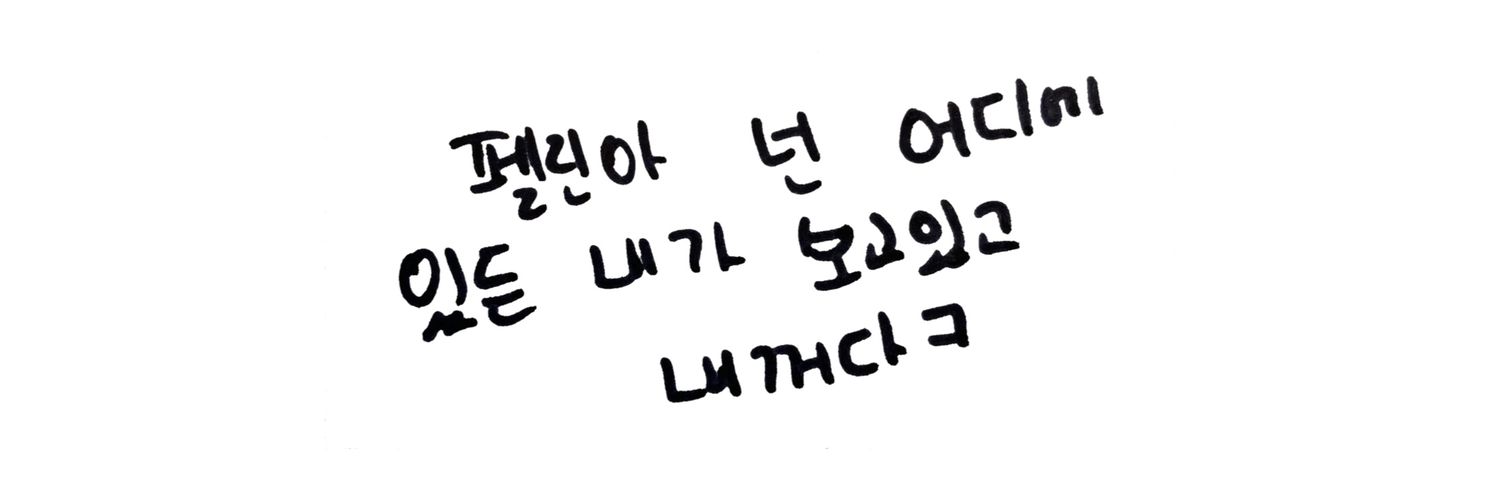 펠린아 넌 어디에
있든 내가 보고있고
내꺼다ㅋ